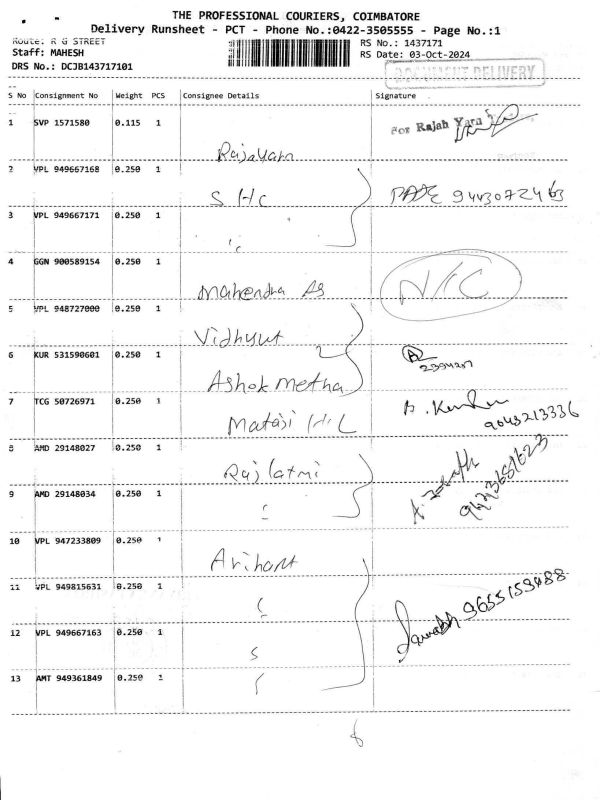 THE PROFESSIONAL COURIERS, COIMBATORE
Delivery Runsheet - PCT - Phone No.:0422-3505555 - Page No.:1
Route: R G STREET
RS No.: 1437171
Staff: MAHESH
RS Date: 03-Oct-2024
DRS No.: DCJB143717101
DOCUMENT DELIVERY
S No Consignment No Weight PCS Consignee Details Signature
1 SVP 1571580 0.115 1
For Rajah Yarn
Rajayarn
2 VPL 949667168 0.250 1
S HC
9443072463
3 VPL 949667171 0.250 1
4 GGN 900589154 0.250 1
Mahendra AS
N/C
5 VPL 948727000 0.250 1
Vidhyut
6 KUR 531590601 0.250 1
Ashok metha
7 TCG 50726971 0.250 1
Mataji
9043213336
8 AMD 29148027 0.250 1
Rajlaxmi
9 AMD 29148034 0.250 1
10 VPL 947233809 0.250 1
Arihant
11 VPL 949815631 0.250 1
12 VPL 949667163 0.250 1
13 AMT 949361849 0.250 1